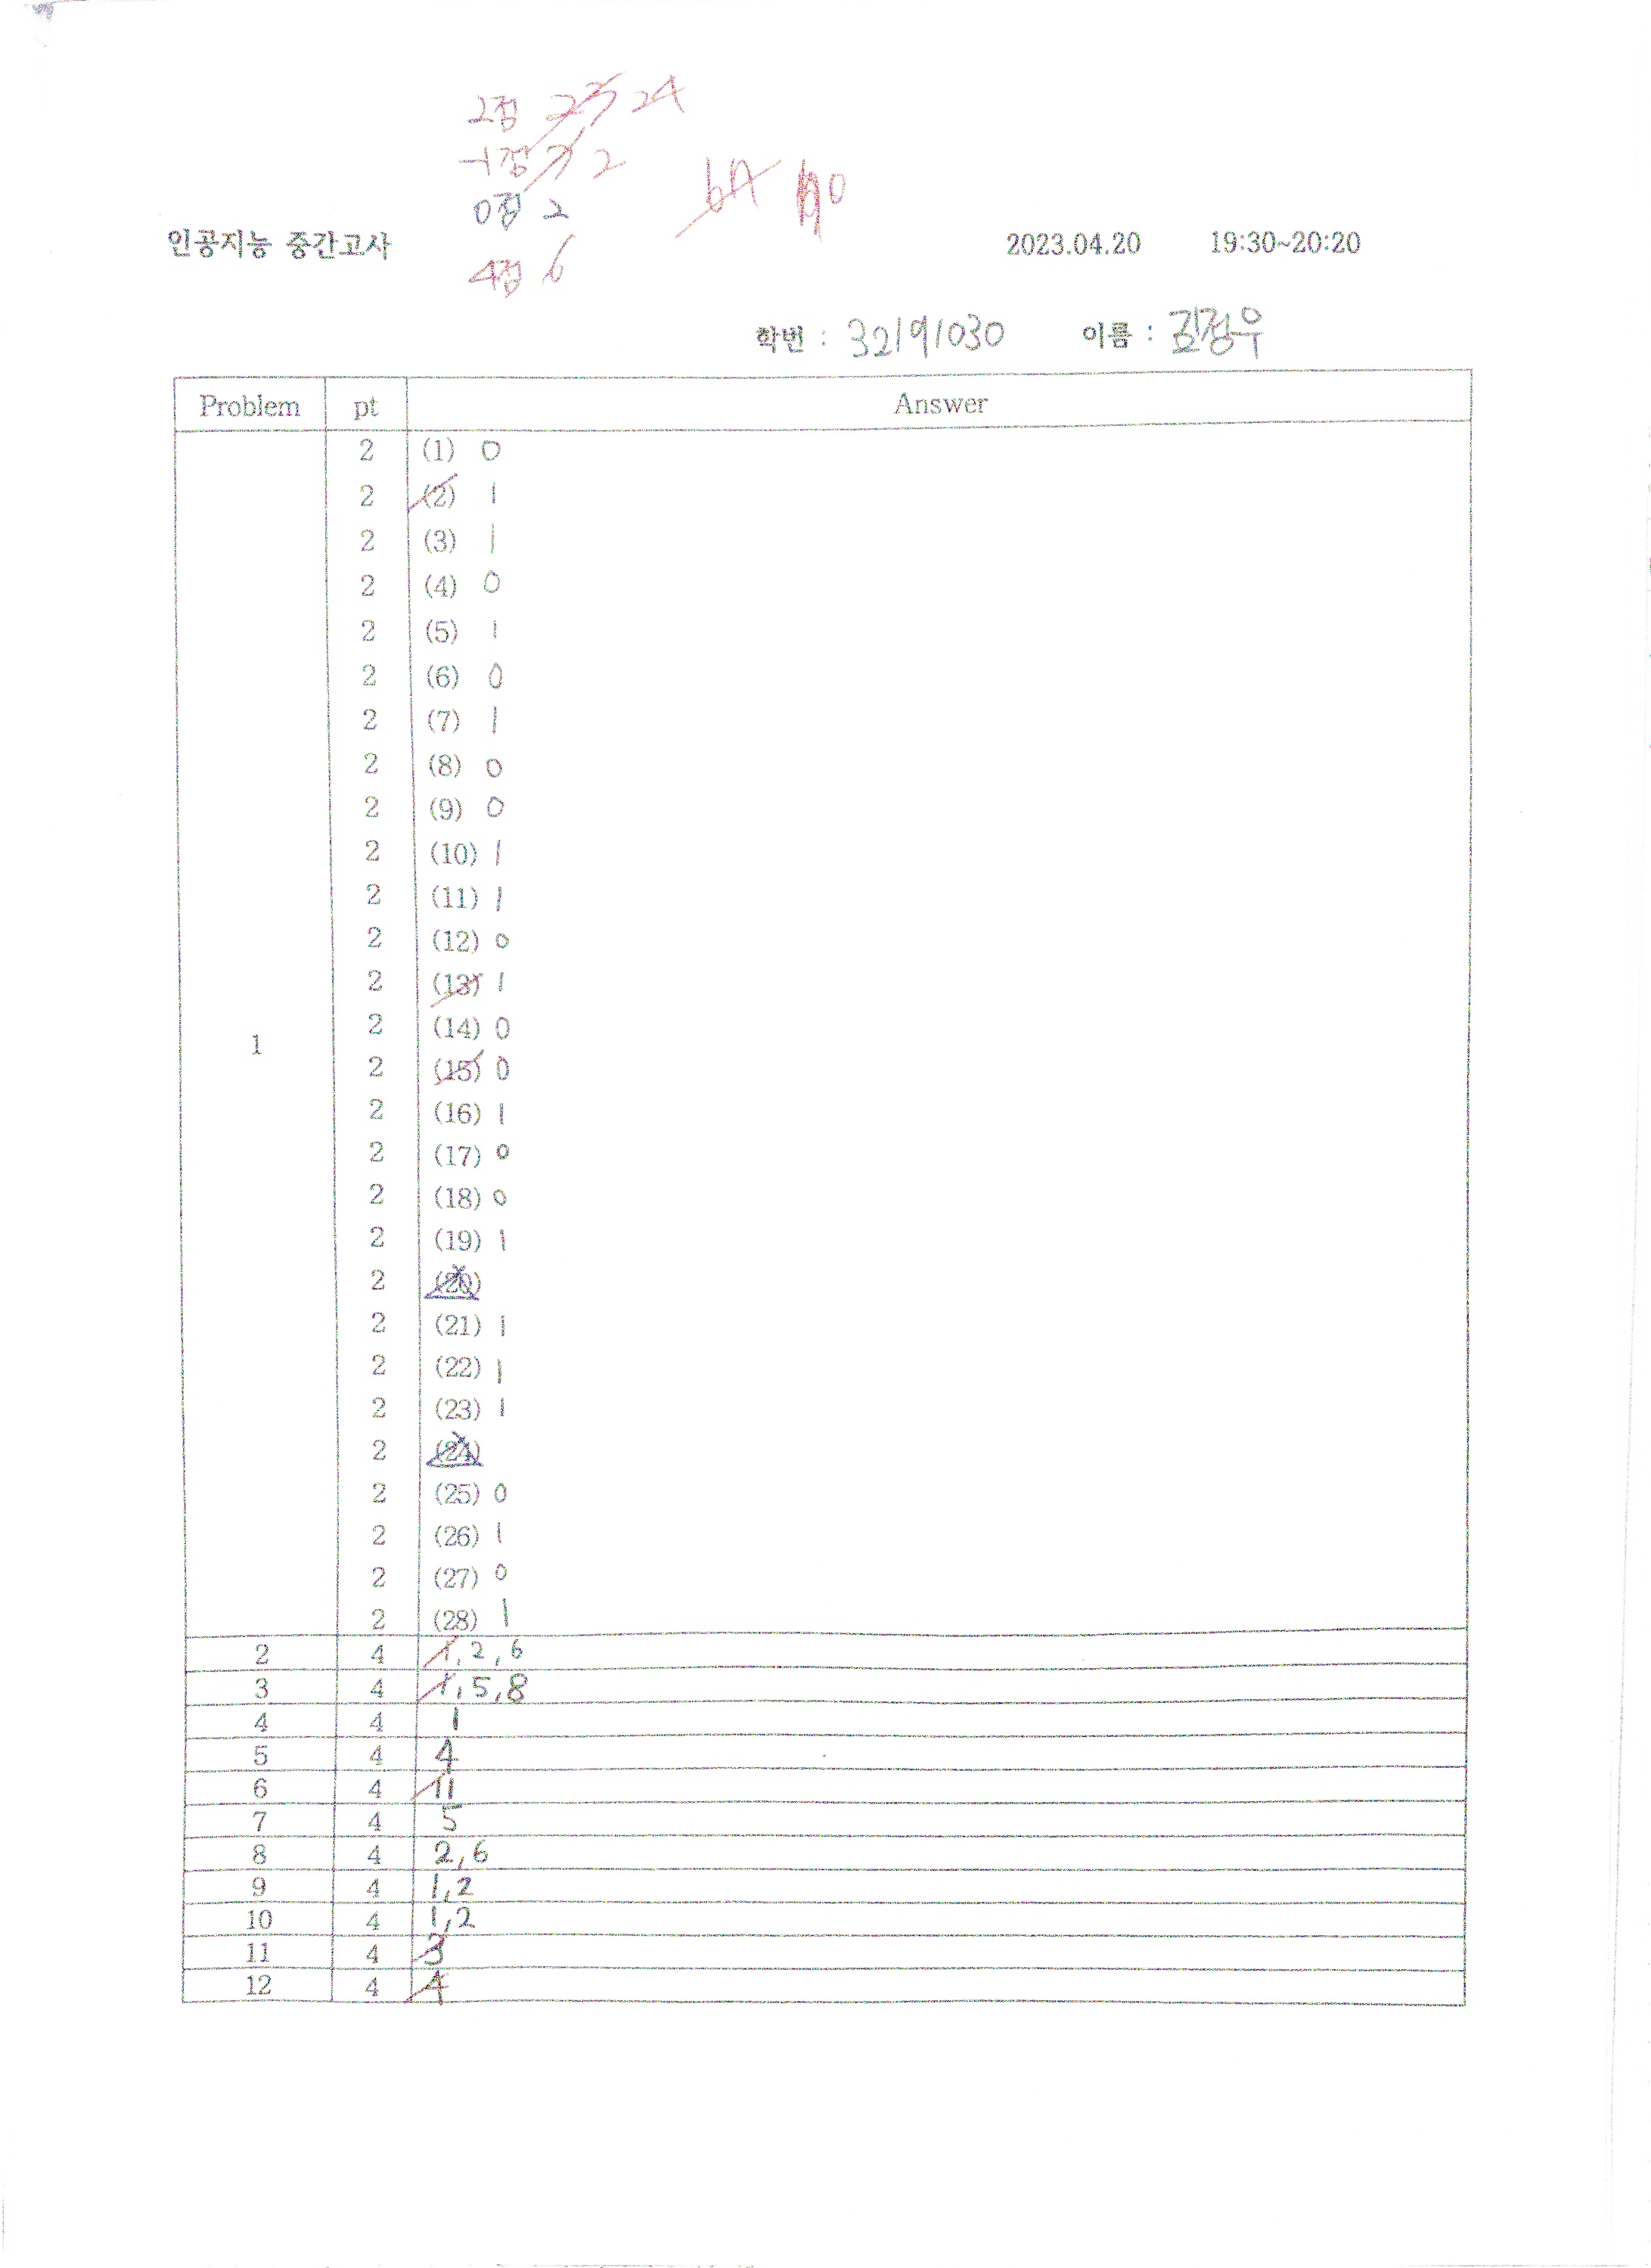 2점 23 24
-1점 3 2
0점 2
4점 6
인공지능 중간고사 2023.04.20 19:30~20:20
학번 : 32191030 이름 : 김정우
Problem pt Answer
2 (1) 0
2 (2) 1
2 (3) 1
2 (4) 0
2 (5) 1
2 (6) 0
2 (7) 1
2 (8) 0
2 (9) 0
2 (10) 1
2 (11) 1
2 (12) 0
2 (13) 1
2 (14) 0
1
2 (15) 0
2 (16) 1
2 (17) 0
2 (18) 0
2 (19) 1
2 (20)
2 (21) 1
2 (22) 1
2 (23) 1
2 (24)
2 (25) 0
2 (26) 1
2 (27) 0
2 (28) 1
2 4 1, 2, 6
3 4 1, 5, 8
4 4 1
5 4 4
6 4 11
7 4 5
8 4 2, 6
9 4 1, 2
10 4 1, 2
11 4 3
12 4 4